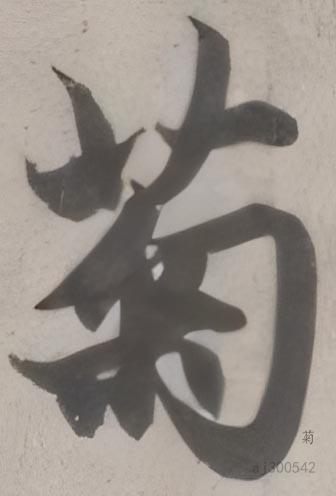 菊
菊
ai300542